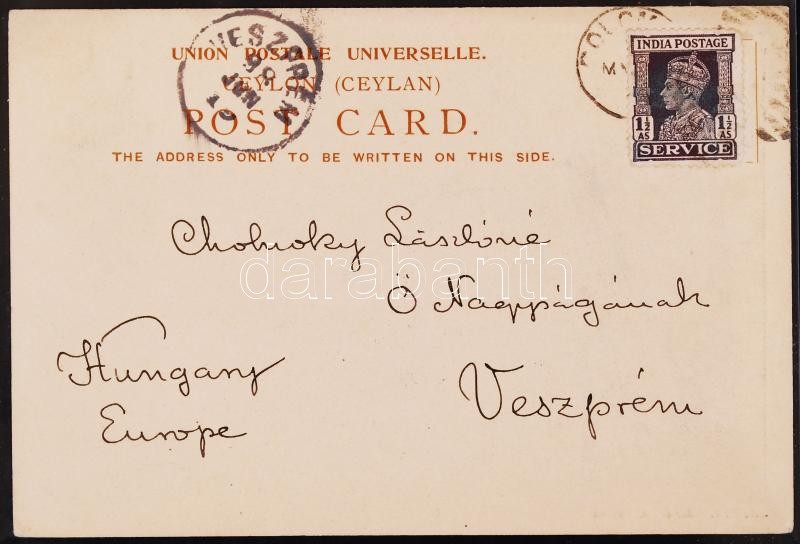 UNION POSTALE UNIVERSELLE.
CEYLON (CEYLAN)
POST CARD.
THE ADDRESS ONLY TO BE WRITTEN ON THIS SIDE.
VESZPRÉM
INDIA POSTAGE
1½ AS 1½ AS
SERVICE
Cholnoky Lászlóné
Ő Nagyságának
Veszprém
Hungary
Europe
darabanth